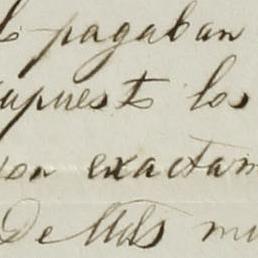 pagaban
upuesto los
on exactam
De Mds m